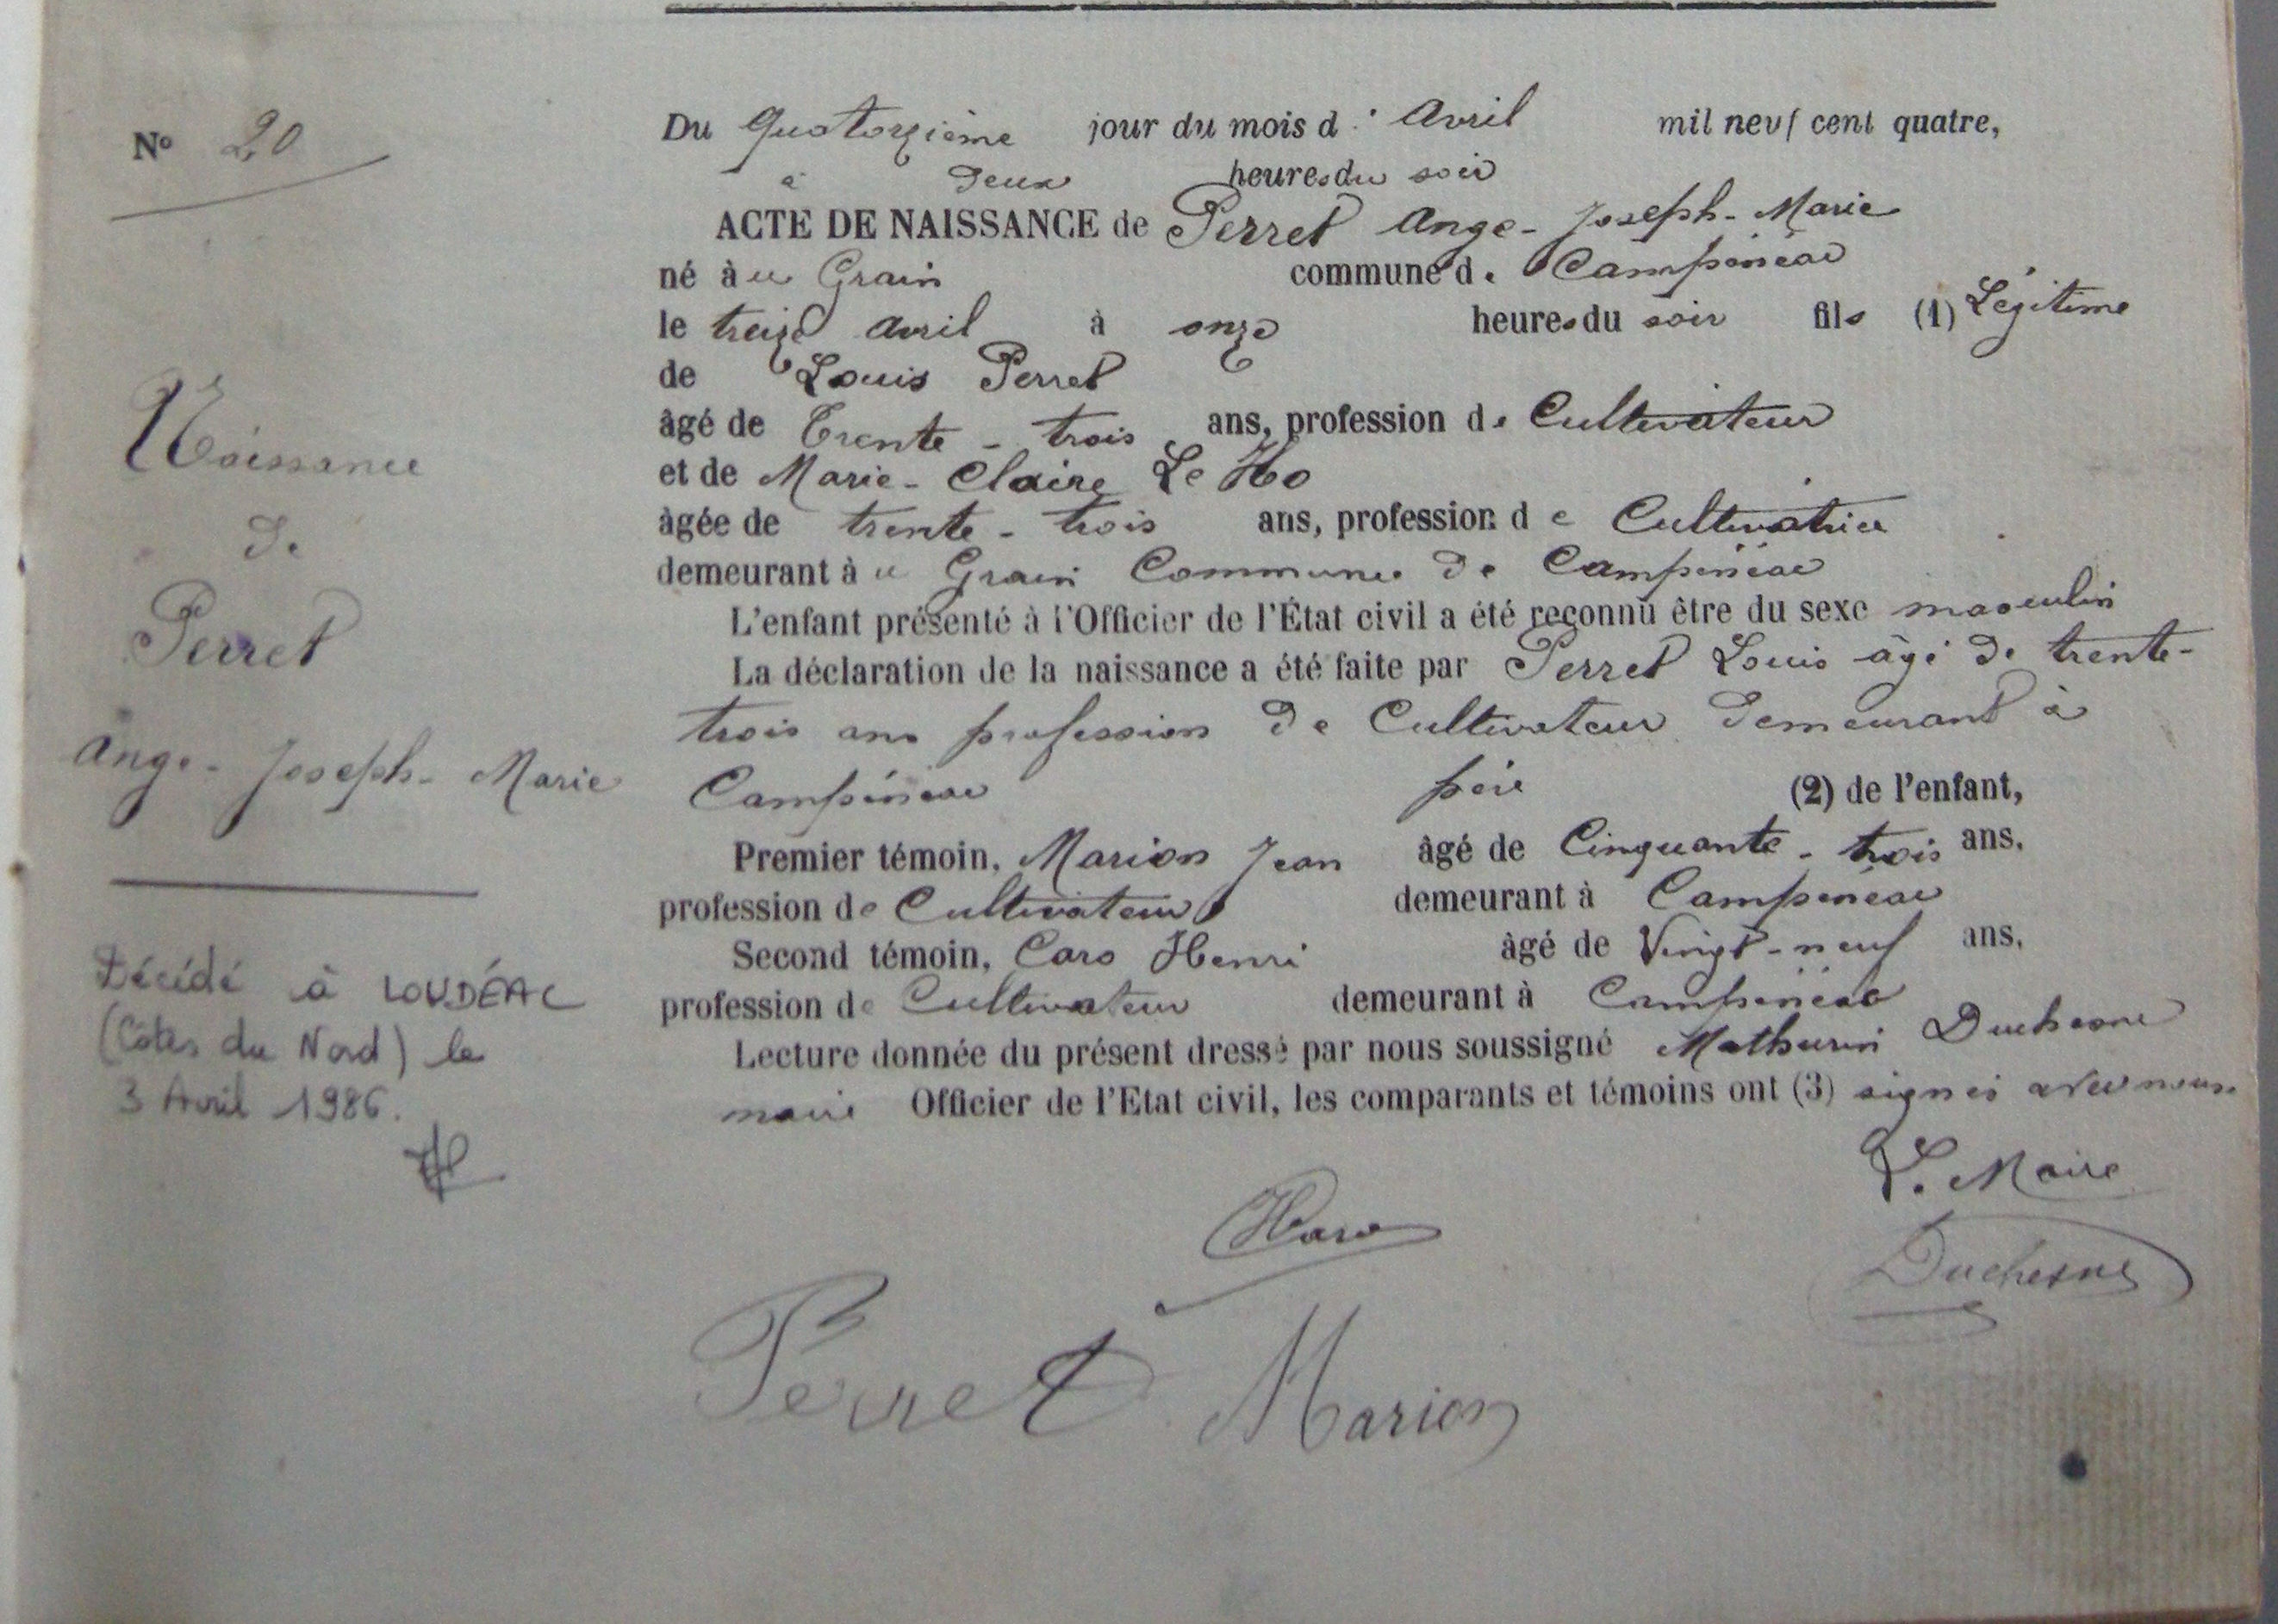 N° 20
Naissance
de
Perret
Ange-Joseph-Marie
Décédé à LOUDÉAC
(Côtes du Nord) le
3 Avril 1986.
Du quatorzième jour du mois d' Avril mil neuf cent quatre,
à deux heures du soir
ACTE DE NAISSANCE de Perret Ange-Joseph-Marie
né à u Grain commune de Campénéac
le treize avril à onze heures du soir fils (1) Légitime
de Louis Perret
âgé de Trente-trois ans, profession de Cultivateur
et de Marie-Claire Le Ho
âgée de trente-trois ans, profession de Cultivatrice
demeurant à u Grain Commune de Campénéac
L'enfant présenté à l'Officier de l'État civil a été reconnu être du sexe masculin
La déclaration de la naissance a été faite par Perret Louis âgé de trente-
trois ans profession de Cultivateur demeurant à
Campénéac père (2) de l'enfant,
Premier témoin, Marion Jean âgé de Cinquante-trois ans.
profession de Cultivateur demeurant à Campénéac
Second témoin, Caro Henri âgé de Vingt-neuf ans.
profession de Cultivateur demeurant à Campénéac
Lecture donnée du présent dressé par nous soussigné Mathurin Duchesne
maire Officier de l'Etat civil, les comparants et témoins ont (3) signés avec nous.
L. Maire
Duchesne
Perret Marion